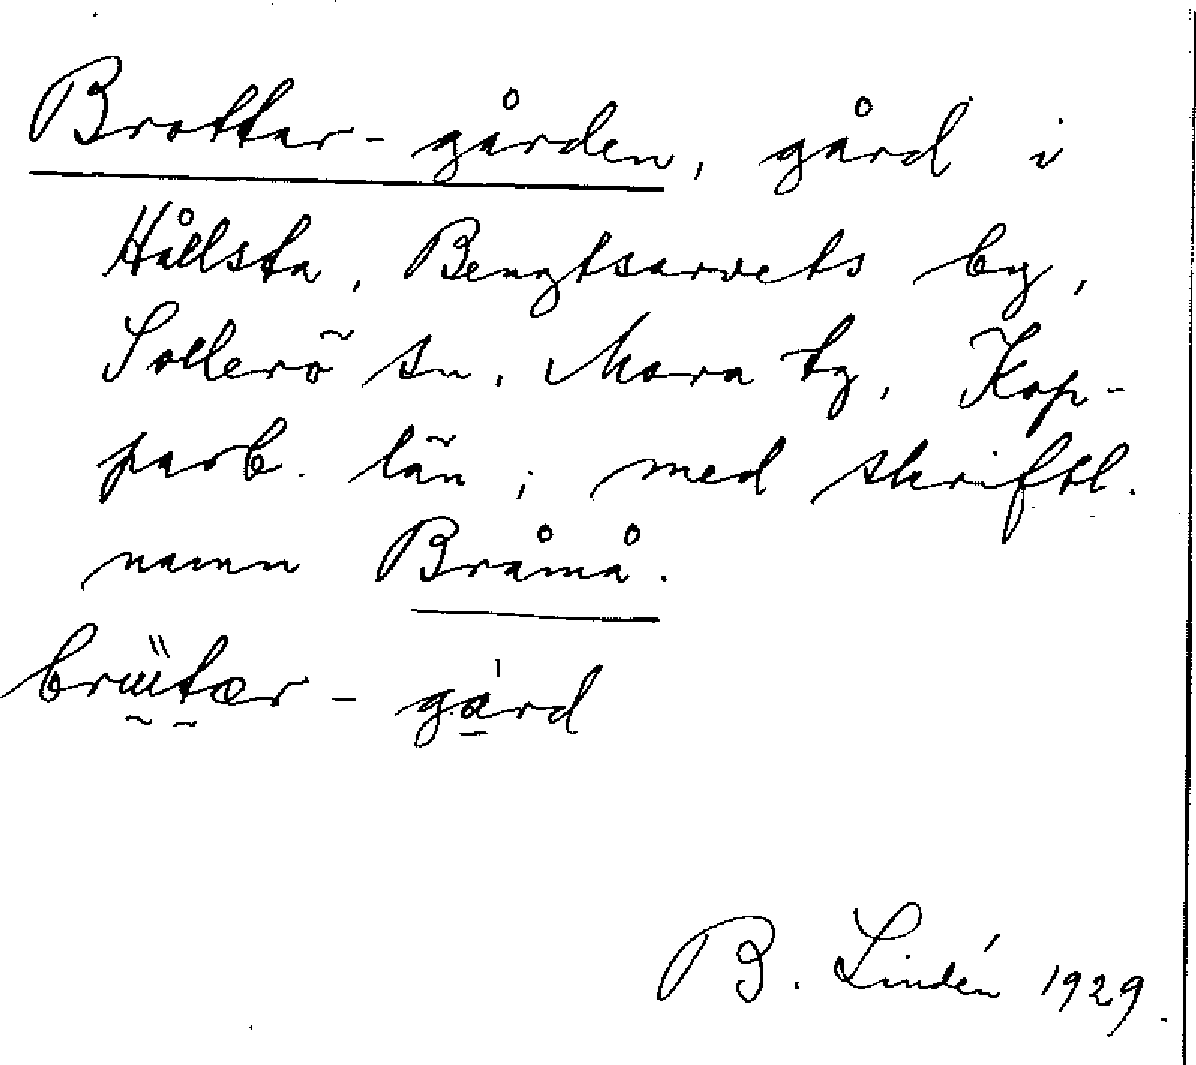 Brottar-gården, gård i
Hållsta, Bengtsarvets by,
Sollerö sn, Mora tg, Kop-
parb. län; med skriftl.
namn Bråmå.
B. Lindén 1929.